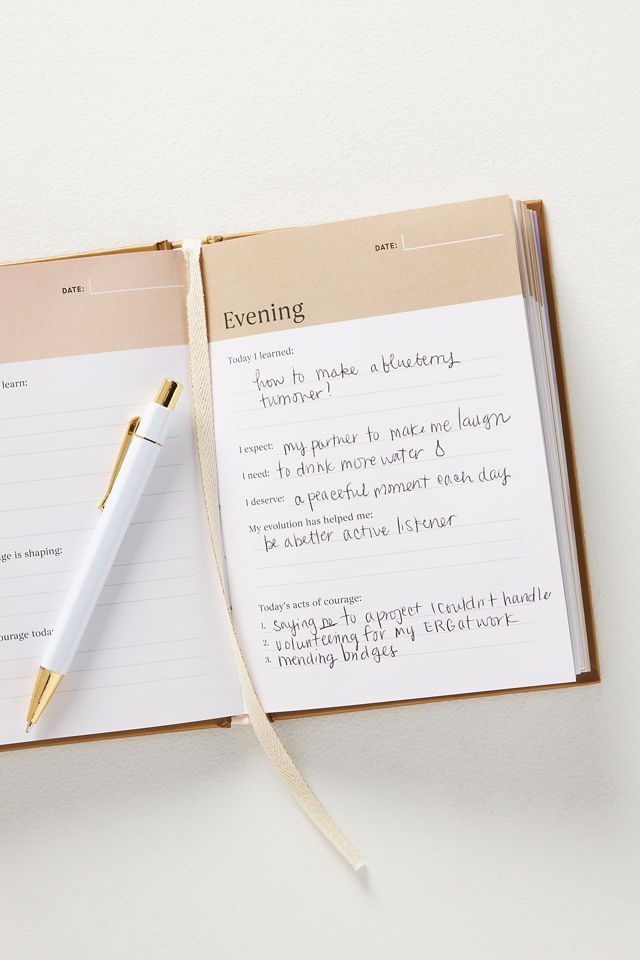 DATE:
learn:
ge is shaping:
ourage today
DATE:
Evening
Today I learned:
how to make a blueberry
turnover!
I expect: my partner to make me laugh
I need: to drink more water
I deserve: a peaceful moment each day
My evolution has helped me:
be a better active listener
Today's acts of courage:
1. saying no to a project I couldn't handle
2. volunteering for my ERG at work
3. mending bridges